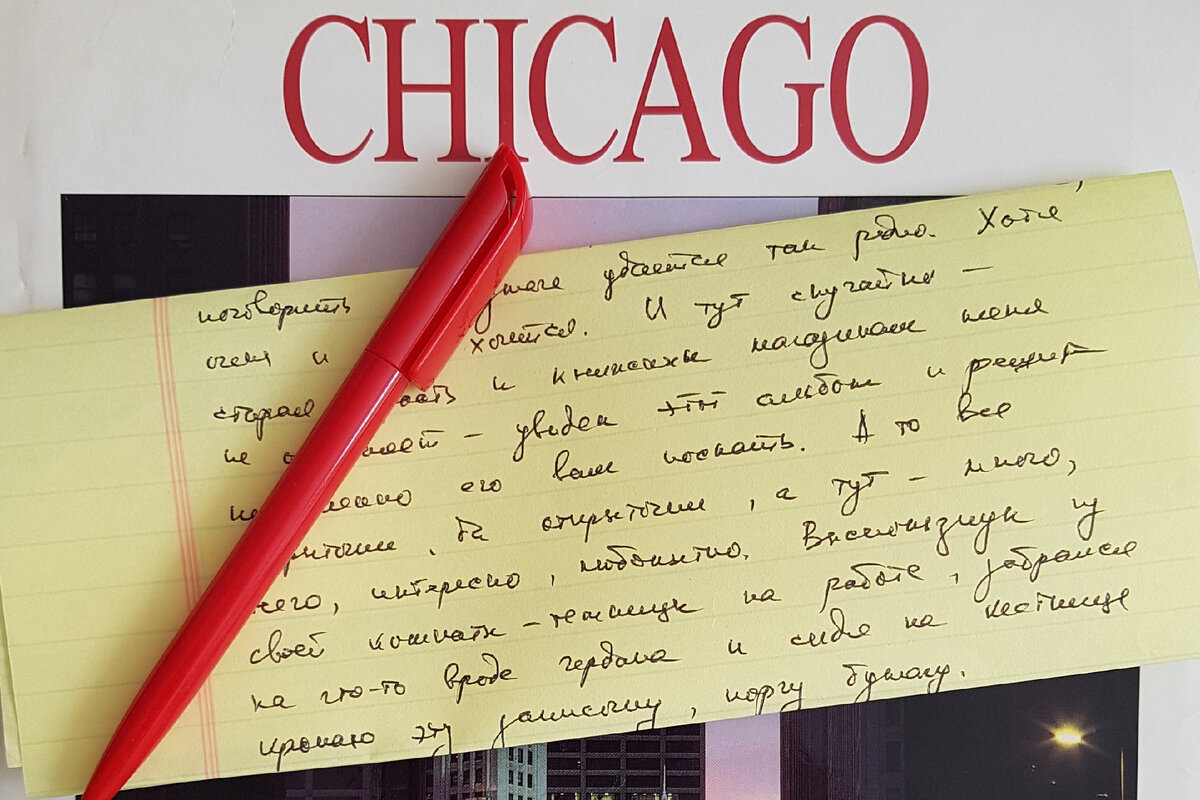 CHICAGO
поговорить бумаге удается так редко. Хотя
очень и хочется. И тут случайно –
стараюсь и книжных магазинах меня
не – увидел этот альбом и решил
его вам послать. А то все
открыточки, да открыточки, а тут – много,
чего, интересно, любопытно. Выскользнув из
своей комнаты – темницы на работе, забрался
на что-то вроде чердака и сидя на лестнице
кропаю эту записочку, порчу бумагу.